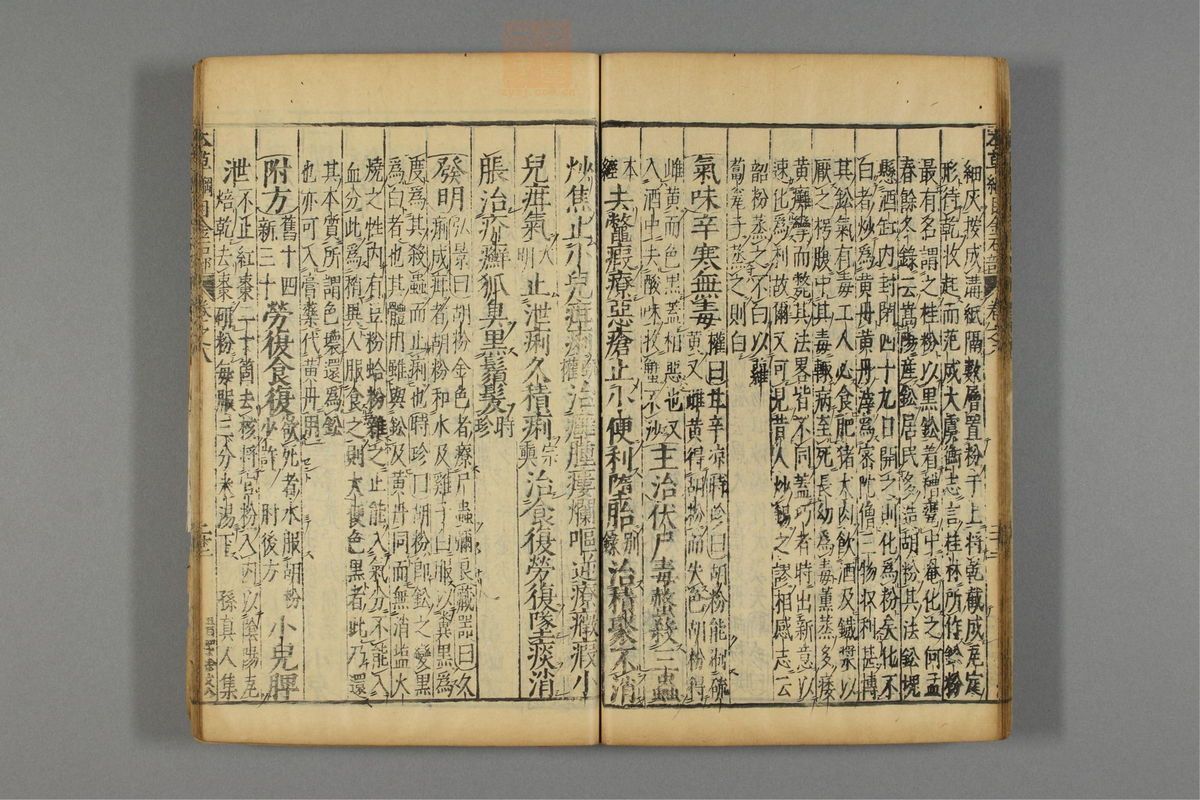 細灰按成溝紙隔數層置粉于上將乾截成瓦定
形待乾收起而范成大虞衡志言桂林所作鉛粉
最有名謂之桂粉以黑鉛着糟甕中罨化之何孟
春餘冬錄云嵩陽産鉛居民多造胡粉其法鉛塊
懸酒缸内封閉四十九日開之則化為粉矣化不
白者炒為黄丹黄丹滓為密陀僧三物収利甚博
其鉛氣有毒工人必食肥猪犬肉飲酒及鐵漿以
厭之枵腹中其毒輙病至死長幼為毒薰蒸多痿
黄癱攣而斃其法畧皆不同蓋巧者時出新意以
速化為利故爾又可見昔人炒
之謬相感志云
韶粉蒸之不白以蘿
蔔瓮子蒸之則白
氣味辛寒無毒
權曰甘辛凉時珍曰胡粉能制硫
黄又雌黄得胡粉而失色胡粉得
雌黄而色黑蓋相惡也又
入酒中去酸味收蟹不沙
主治伏尸毒螫殺三蟲
本經
去鼈瘕療惡瘡止小便利墮胎
别錄
治積聚不消
炒焦止小兒疳痢
甄權
治癰腫瘻爛嘔逆療癥瘕小
兒疳氣
大明
止泄痢久積痢
宗奭
治食復勞復墜痰消
脹治疥癬狐臭黑鬚髮
時珍
發明
弘景曰胡粉金色者療尸蟲彌良藏器曰久
痢成疳者胡粉和水及雞子白服以糞黑為
度為其殺蟲而止痢也時珍曰胡粉即鉛之變黑
為白者也其體用雖與鉛及黄丹同而無消鹽火
燒之性内有豆粉蛤粉雜之止能入氣分不能入
血分此為稍異人服食之則大便色黑者此乃還
其本質所謂色壞還為鉛
也亦可入膏藥代黄丹用
附方
舊十四
新三十
勞復食復
欲死者水服胡粉
少許 肘後方
小兒脾
泄
不止紅棗二十箇去核將官粉入内以陰陽瓦
焙乾去棗研粉每服三分米湯下 孫真人集
本草綱目金石部
卷之八